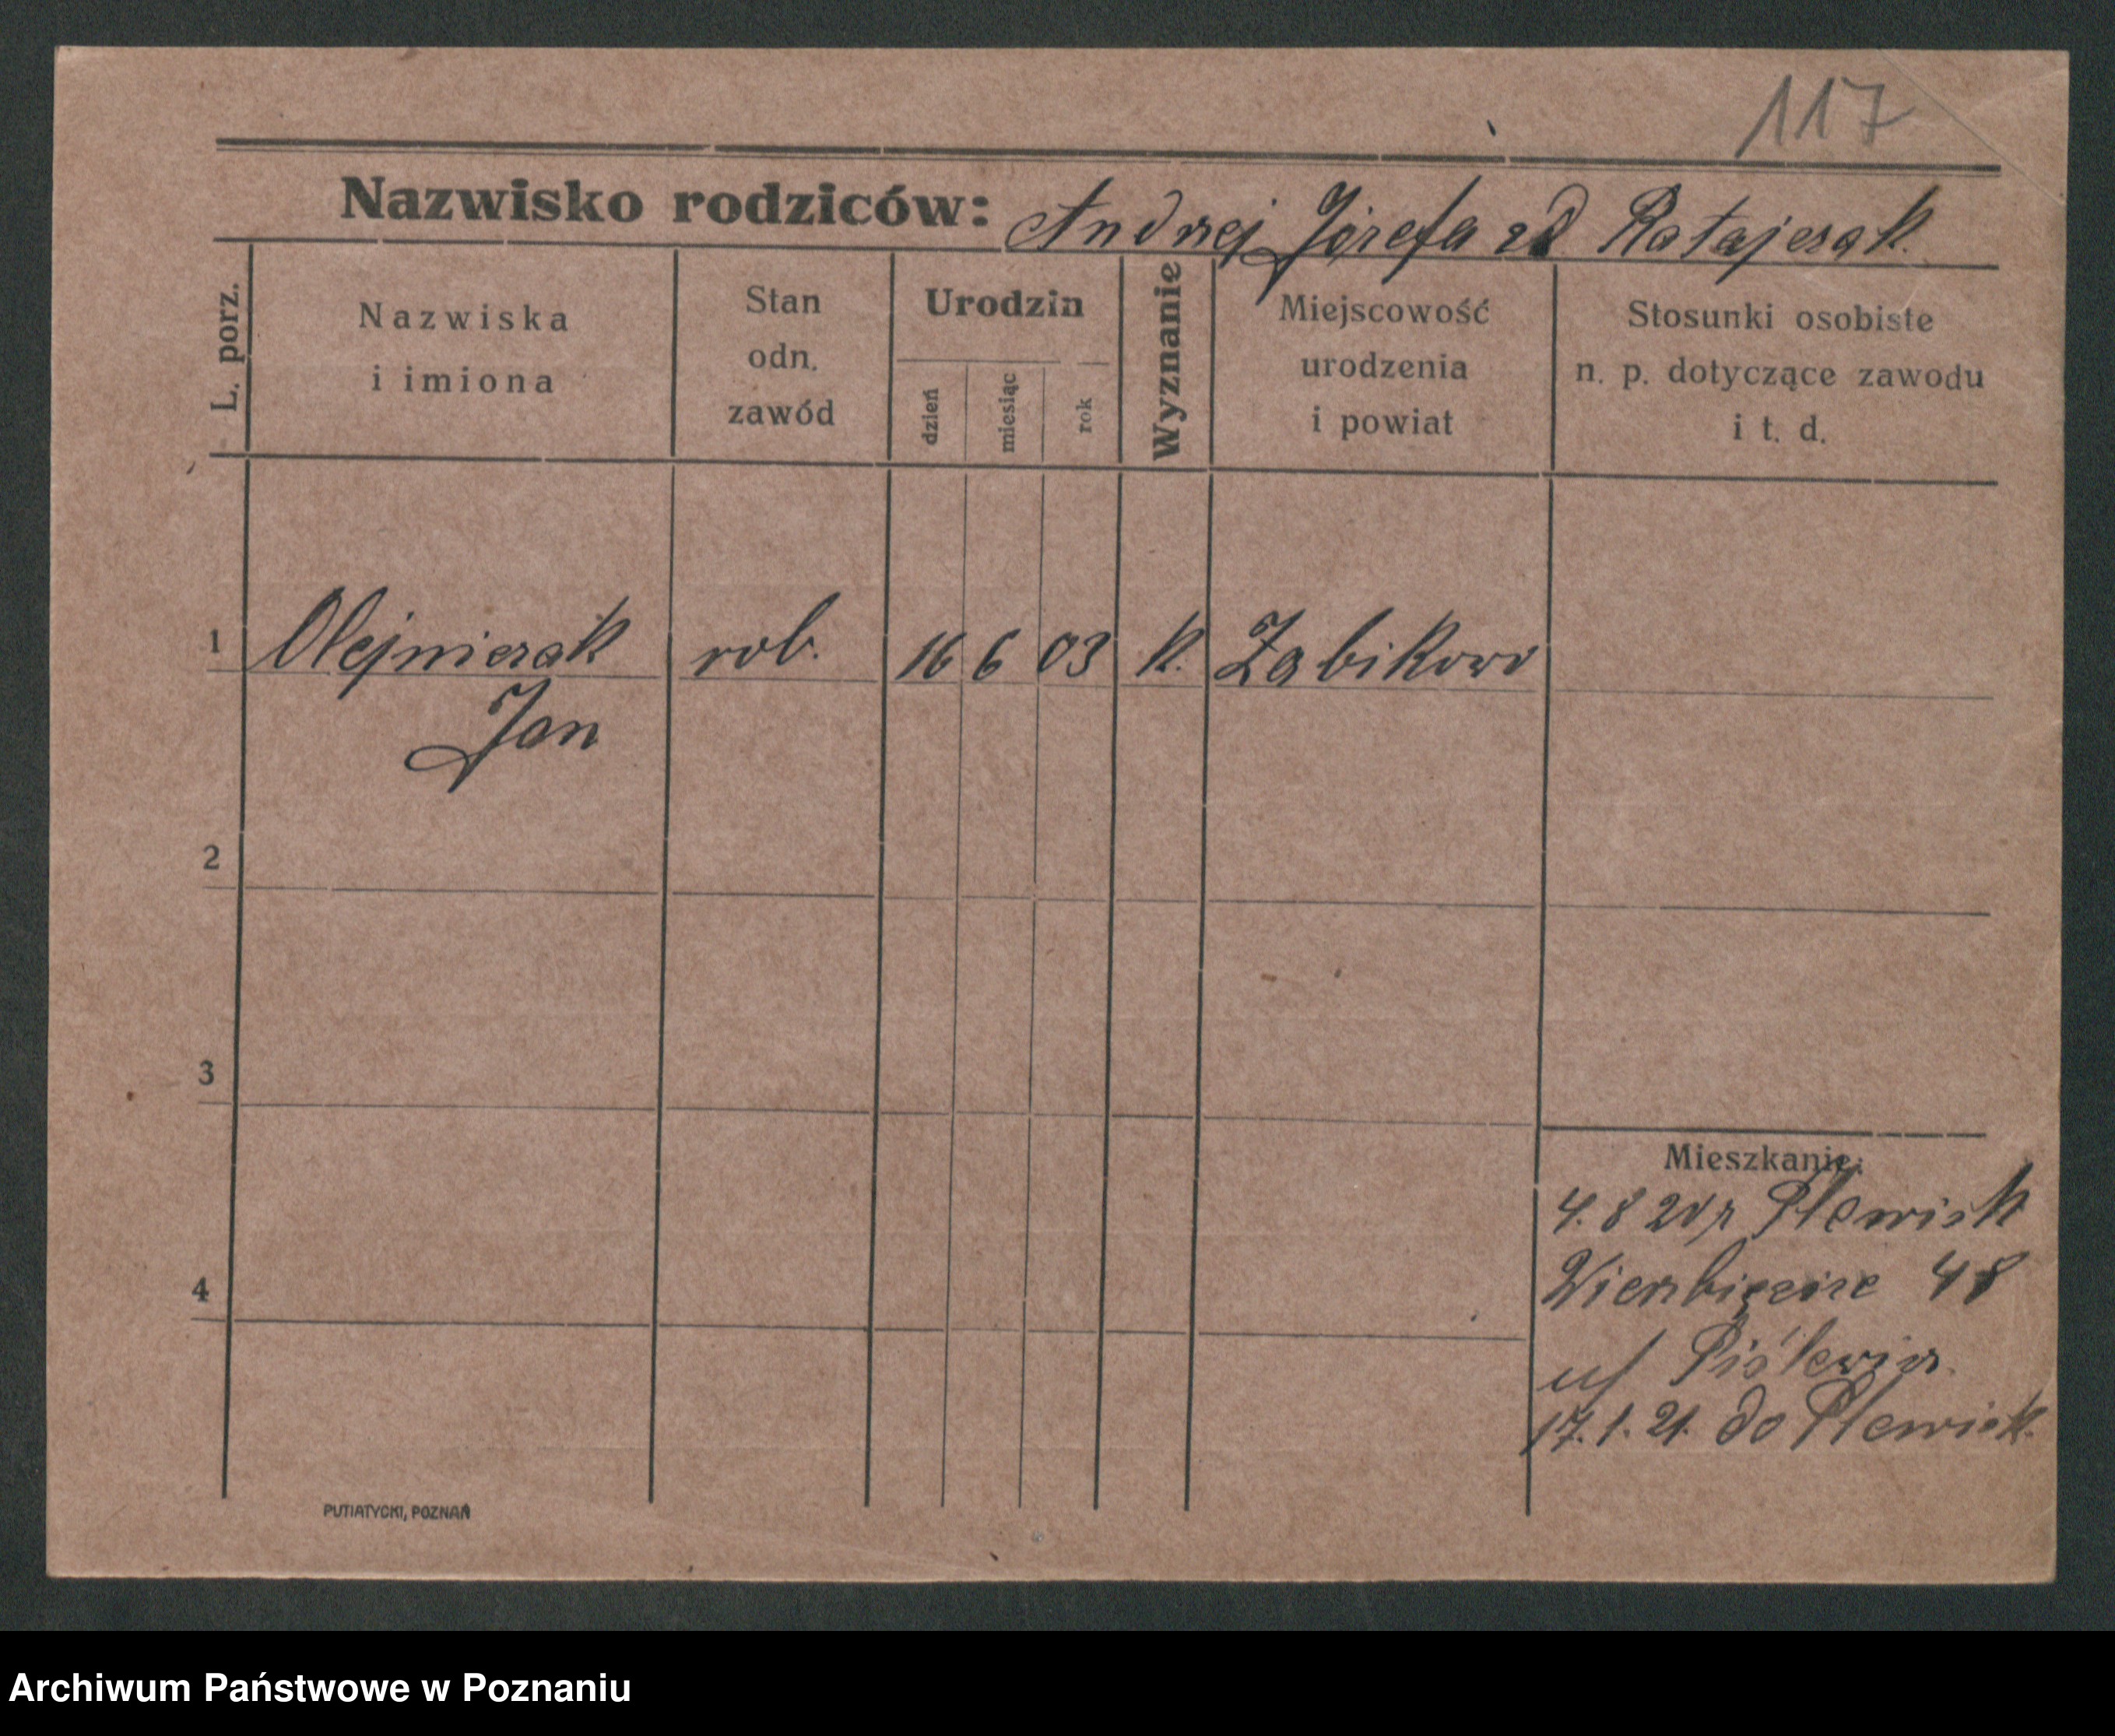 117
Nazwisko rodziców: Andrzej Józefa zd Ratajczak.
L. porz.
Nazwiska i imiona
Stan odn. zawód
Urodzin
dzień
miesiąc
rok
Wyznanie
Miejscowość urodzenia i powiat
Stosunki osobiste n. p. dotyczące zawodu i t. d.
1 Olejniczak rob. 16 6 03 k. Żabikowo
Jan
2
3
4
Mieszkanie:
4. 8 20 z Plewisk
Wierzbięcice 48
u/
17. 1. 21. do Plewisk.
PUTIATYCKI, POZNAŃ
Archiwum Państwowe w Poznaniu